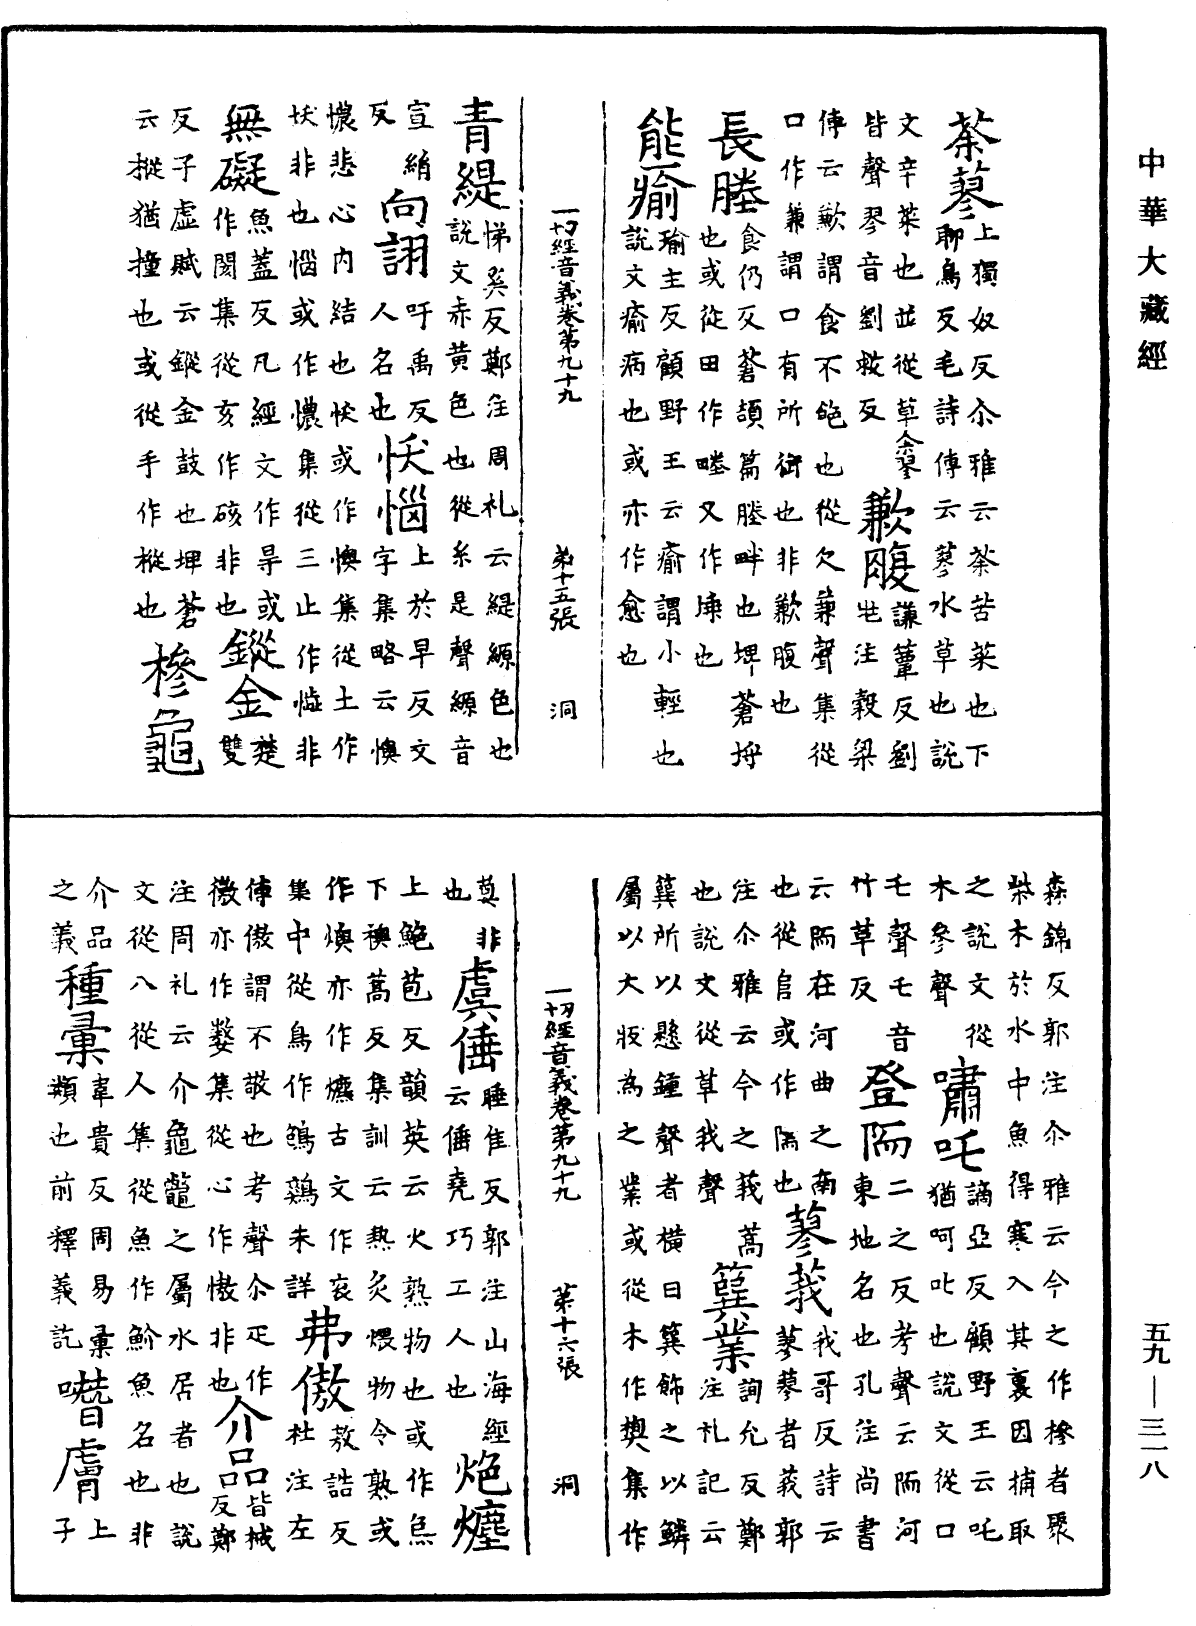 中華大藏經
荼蓼上獨奴反尒雅云荼苦菜也下
聊鳥反毛詩傳云蓼水草也說
文辛菜也並從草余翏
皆聲翏音劉救反 歉腹謙簟反劉
兆注穀梁
傳云歉謂食不飽也從欠兼聲集從
口作嗛謂口有所銜也非歉腹也
長塍食仍反蒼頡篇塍畔也埤蒼埒
也或從田作畻又作堘也
能瘉瑜主反顧野王云瘉謂小輕也
說文瘉病也或亦作愈也
一切經音義卷第九十九 第十五張 洞
青緹悌奚反鄭注周礼云緹縓色也
說文赤黄色也從糸是聲縓音
宣絹反 向詡吁禹反
人名也 怏惱上於早反文
字集略云懊
憹悲心內結也怏或作懊集從土作
坱非也惱或作憹集從三止作𢙉非
無礙魚蓋反凡經文作㝵或
作閡集從亥作硋非也 鏦金楚
雙
反子虛賦云鏦金鼓也埤蒼
云樅猶撞也或從手作摐也 椮龜
森錦反郭注尒雅云今之作椮者聚
柴木於水中魚得寒入其裏因捕取
之說文從
木參聲 嘯吒謫亞反顧野王云吒
猶呵叱也說文從口
乇聲乇音
竹草反 登陑二之反考聲云陑河
東地名也孔注尚書
云陑在河曲之南
也從𨸏或作隭也 蓼莪我哥反詩云
蓼蓼者莪郭
注尒雅云今之莪蒿
也說文從草我聲 簨業詢允反鄭
注礼記云
簨所以懸鍾聲者橫曰簨飾之以鱗
屬以大版為之業或從木作㯢集作
一切經音義卷第九十九 第十六張 洞
䔛非
也 虞倕睡隹反郭注山海經
云倕堯巧工人也 炮㷶
上鮑苞反韻英云火熟物也或作炰
下襖蒿反集訓云熱灰煨物令熟或
作燠亦作爊古文作㷉
集中從鳥作鴢鷄未詳 弗傲敖誥反
杜注左
傳傲謂不敬也考聲尒疋作
傲亦作嫯集從心作慠非也 介品皆械
反鄭
注周礼云介龜鼈之屬水居者也說
文從八從人集從魚作魪魚名也非
介品
之義 種彙韋貴反周易彙
類也前釋義訖 噆膚上
子
五九—三一八